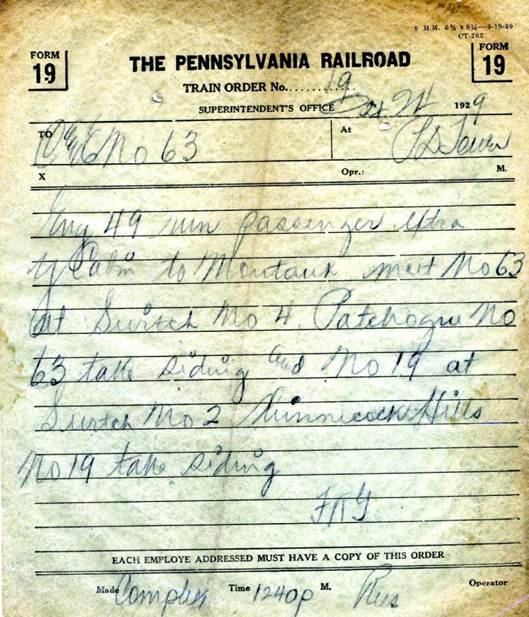 9 M.M. 6¾ x 8¼—3-19-29
CT-262
FORM
19
FORM
19
THE PENNSYLVANIA RAILROAD
TRAIN ORDER No. 19
SUPERINTENDENT'S OFFICE 24 1929
TO C&E No 63 At Tower
X Opr.: M.
Eng 49 run passenger Extra
to Montauk meet No 63
at Switch No 4 Patchogue No
63 take siding and No 19 at
Switch No 2 Shinnecock Hills
No 19 take siding
EACH EMPLOYE ADDRESSED MUST HAVE A COPY OF THIS ORDER
Made Complete Time 1240p M. Operator